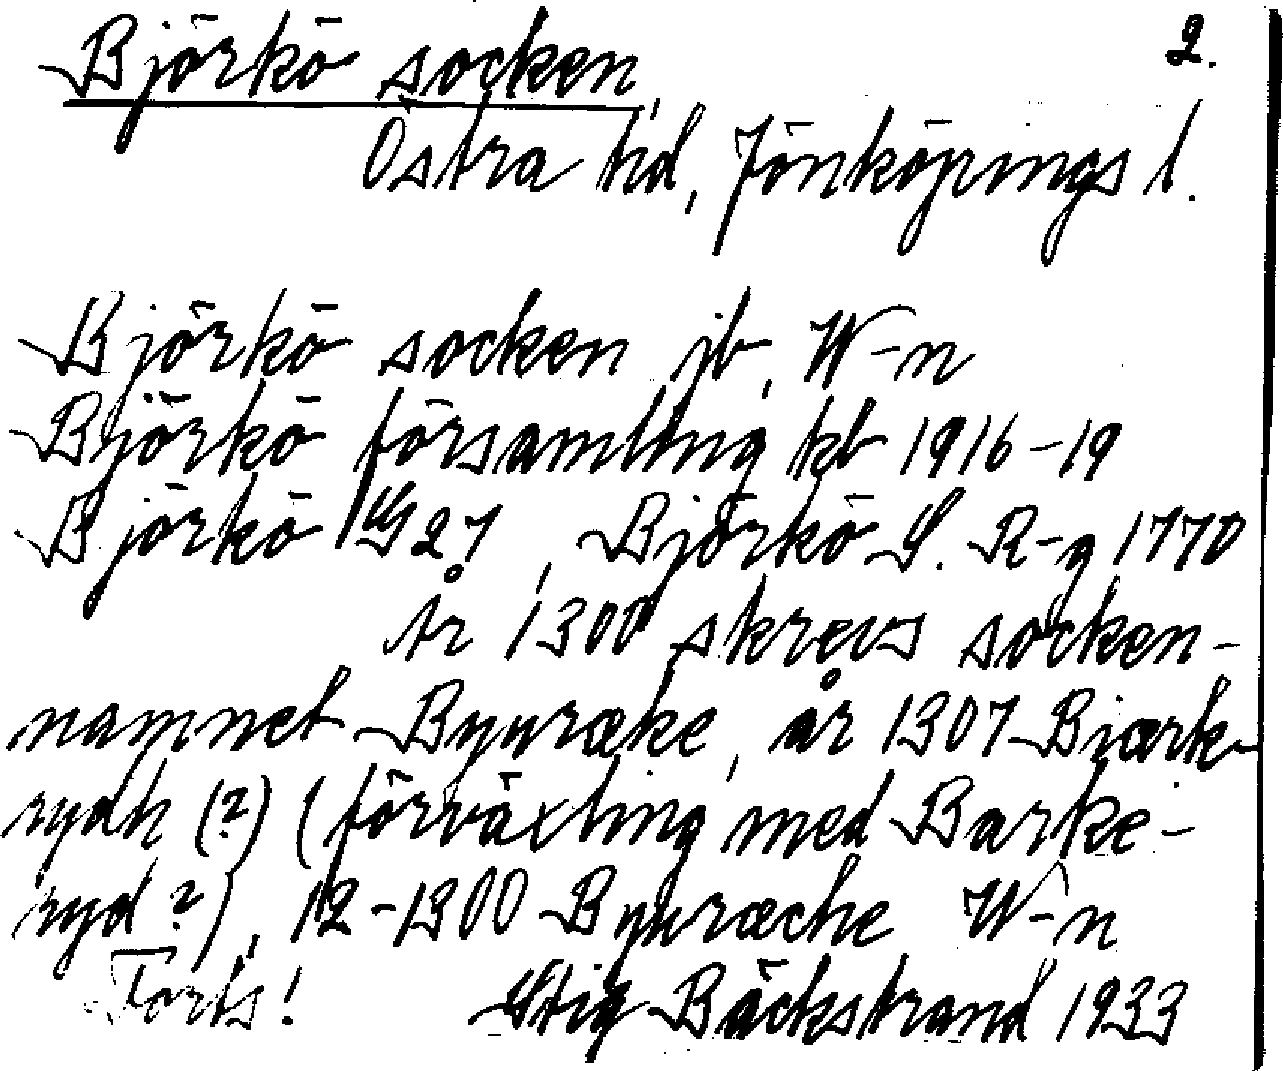 Björkö socken, 2.
Östra hd, Jönköpings l.
Björkö socken jb, W-n
Björkö församling kb 1916-19
Björkö G 27, Björkö S. R-g 1770
År 1300 skrevs socken-
namnet Byuræke, år 1307 Biærk-
rydh (?) (förväxling med Barke-
ryd?), 12-1300 Byuræche W-n
Forts! Stig Bäckstrand 1933